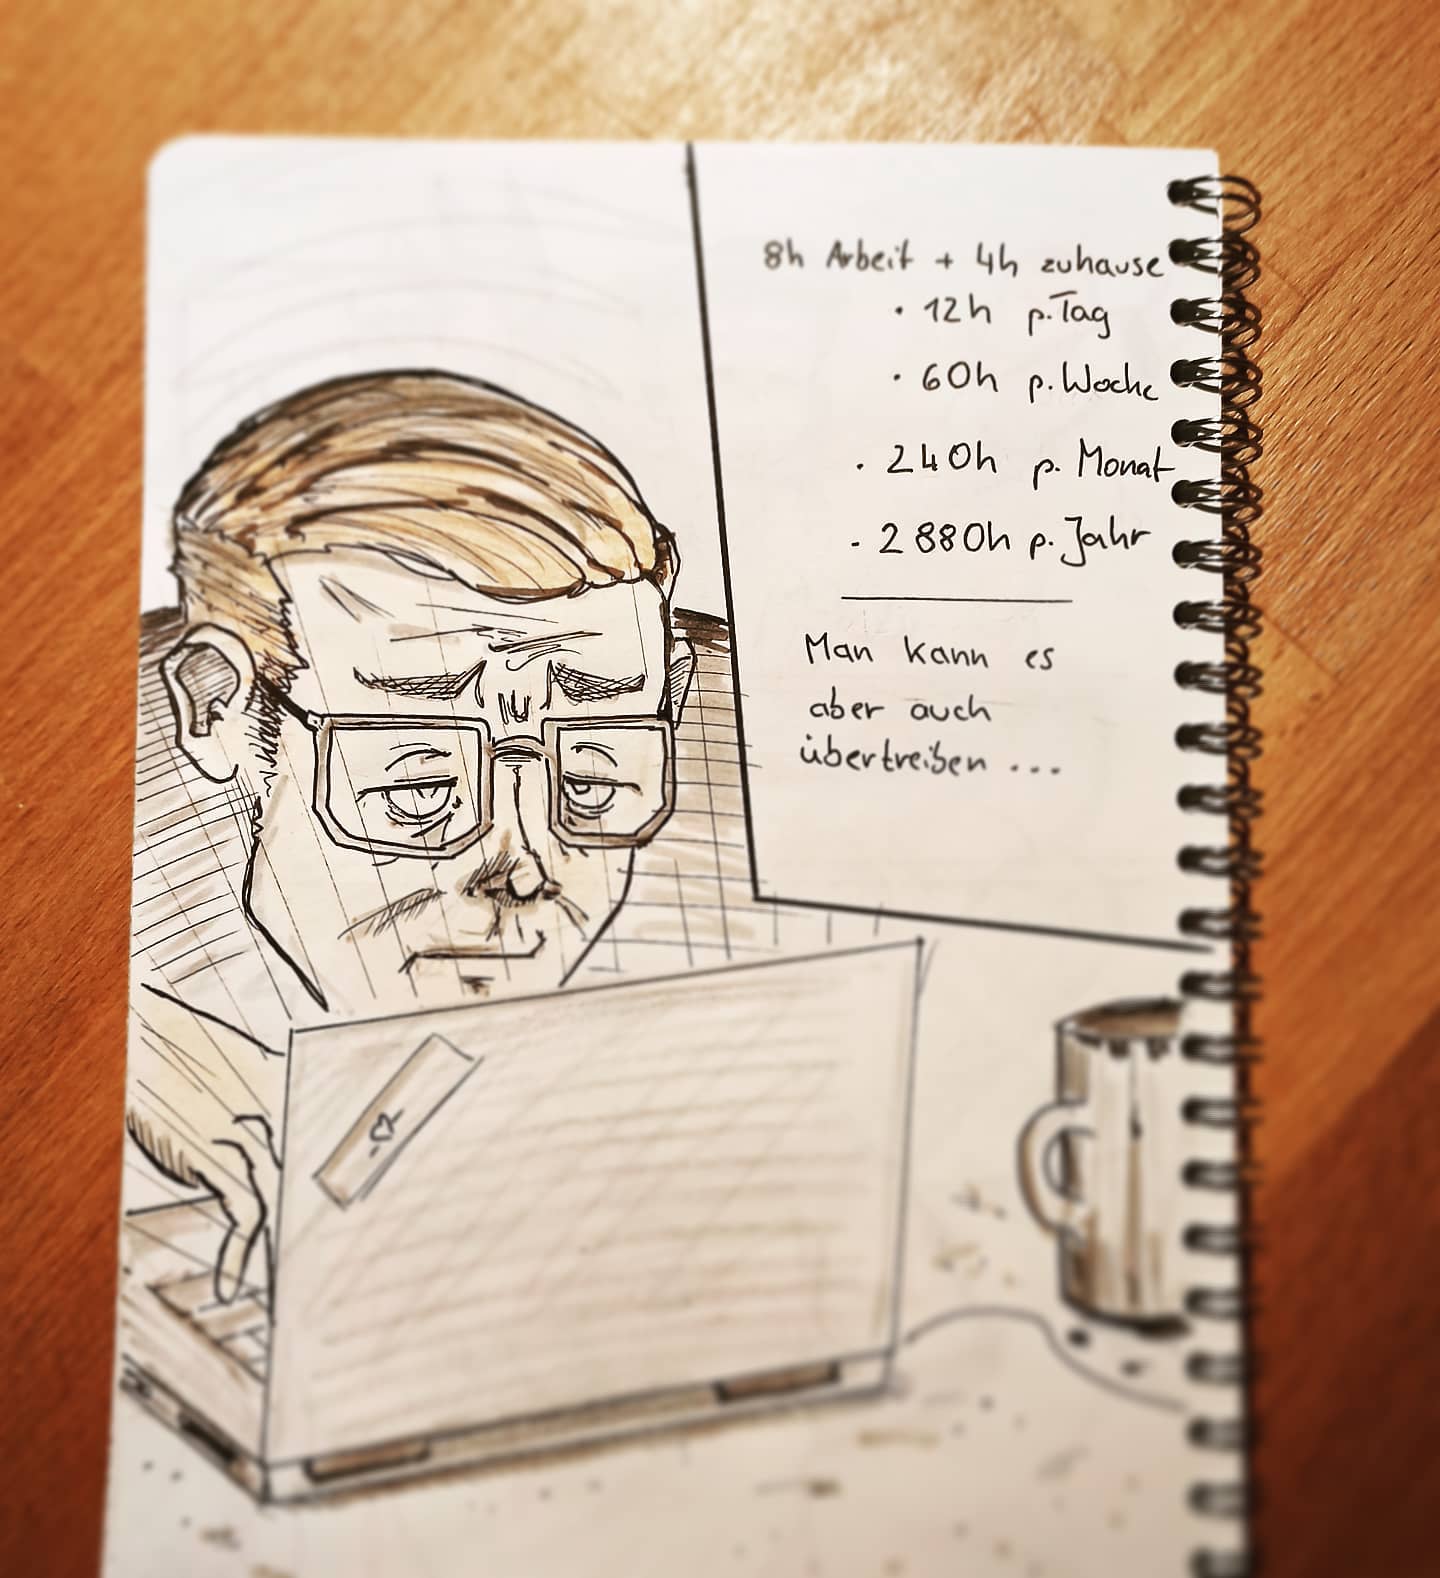 8h Arbeit + 4h zuhause
• 12h p. Tag
• 60h p. Woche
• 240h p. Monat
- 2880h p. Jahr
Man kann es
aber auch
übertreiben ...